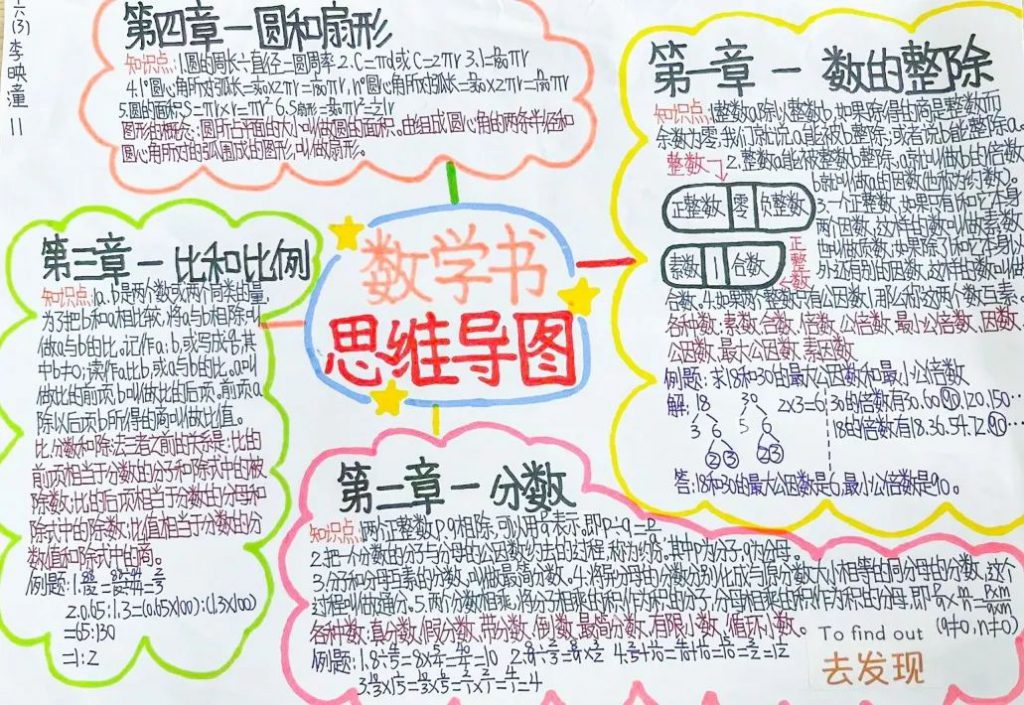 六(3) 李映潼 11
数学书
思维导图
第四章一圆和扇形
知识点:1.圆的周长÷直径=圆周率 2.C=πd或C=2πr
5.圆的面积S=πr×r=πr²
图形的概念:圆所占平面的大小叫做圆的面积。由组成圆心角的两条半径和
圆心角所对的弧围成的图形,叫做扇形。
第一章一数的整除
知识点:1.整数a除以整数b,如果除得的商是整数而
余数为零,我们就说a能被b整除;或者说b能整除a。
整数 2.整数a能被整数b整除,a就叫做b的倍数
b就叫做a的因数(也称为约数)。
正整数 零 负整数
3.一个正整数,如果只有1和它本身
两个因数,这样的数叫做素数,
素数 1 合数
正整数
也叫做质数;如果除了1和它本身以
外还有别的因数,这样的数叫做
合数。4.如果两个整数只有公因数1,那么称这两个数互素。
各种数:素数,合数,倍数,公倍数,最小公倍数,因数,
公因数,最大公因数,素因数
例题:求18和30的最大公因数和最小公倍数
解: 18 30 2×3=6 30的倍数有30.60.90.120.150…
3 6 5 6 18的倍数有18.36.54.72.90…
2 3 2 3
答:18和30的最大公因数是6,最小公倍数是90。
第三章一比和比例
知识点:1a.b是两个数或两个同类的量,
为了把b和a相比较,将a与b相除,叫
做a与b的比。记作a:b,或写成a/b,其
中b≠0;读作a比b,或a与b的比。a叫
做比的前项,b叫做比的后项。前项a
除以后项b所得的商叫做比值。
比.分数和除法三者之前的关系是:比的
前项相当于分数的分子和除式中的被
除数;比的后项相当于分数的分母和
除式中的除数;比值相当于分数的分
数值和除式中的商。
例题:1.
2.0.65:1.3=(0.65×100):(1.3×100)
=65:130
=1:2
第二章一分数
知识点:1两个正整数p.q相除,可以用p/q表示。即p÷q=p/q
2.把一个分数的分子与分母的公因数约去的过程,称为约分。其中p为分子,q为分母。
3.分子和分母互素的分数,叫做最简分数。4.将异分母的分数分别化成与原分数大小相等的同分母的分数,这个
过程叫做通分。5.两个分数相乘,将分子相乘的积作为积的分子,分母相乘的积作为积的分母,即p/q×m/n=p×m/q×n
(q≠0,n≠0)
各种数:真分数,假分数,带分数,倒数,最简分数,有限小数,循环小数。
例题:1.8÷4/5=8×5/4=40/4=10
To find out
去发现